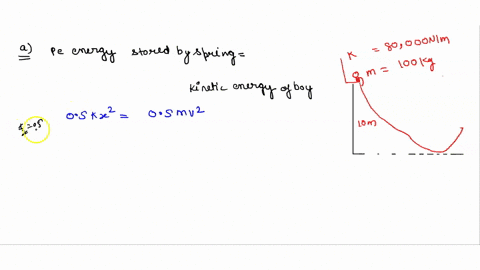 a) Pe energy stored by spring =
kinetic energy of boy
0.5 Kx² = 0.5 mv²
K = 80,000 N/m
m = 100 kg
10m